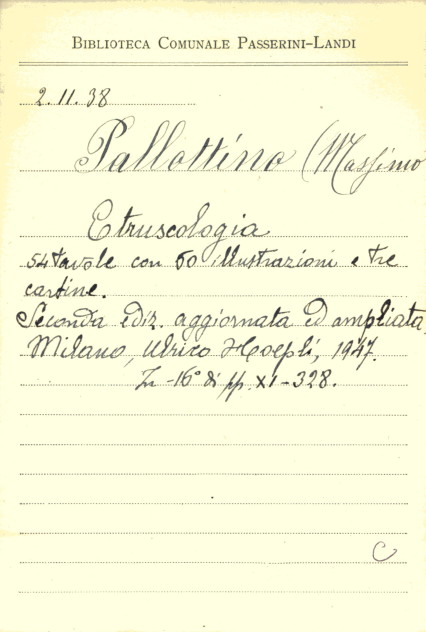 BIBLIOTECA COMUNALE PASSERINI-LANDI
2.11.38
Pallottino (Massimo
Etruscologia
54 tavole con 50 illustrazioni e tre
cartine.
Seconda ediz. aggiornata ed ampliata,
Milano, Ulrico Hoepli, 1947.
In-16° di pp. XI-328.
C